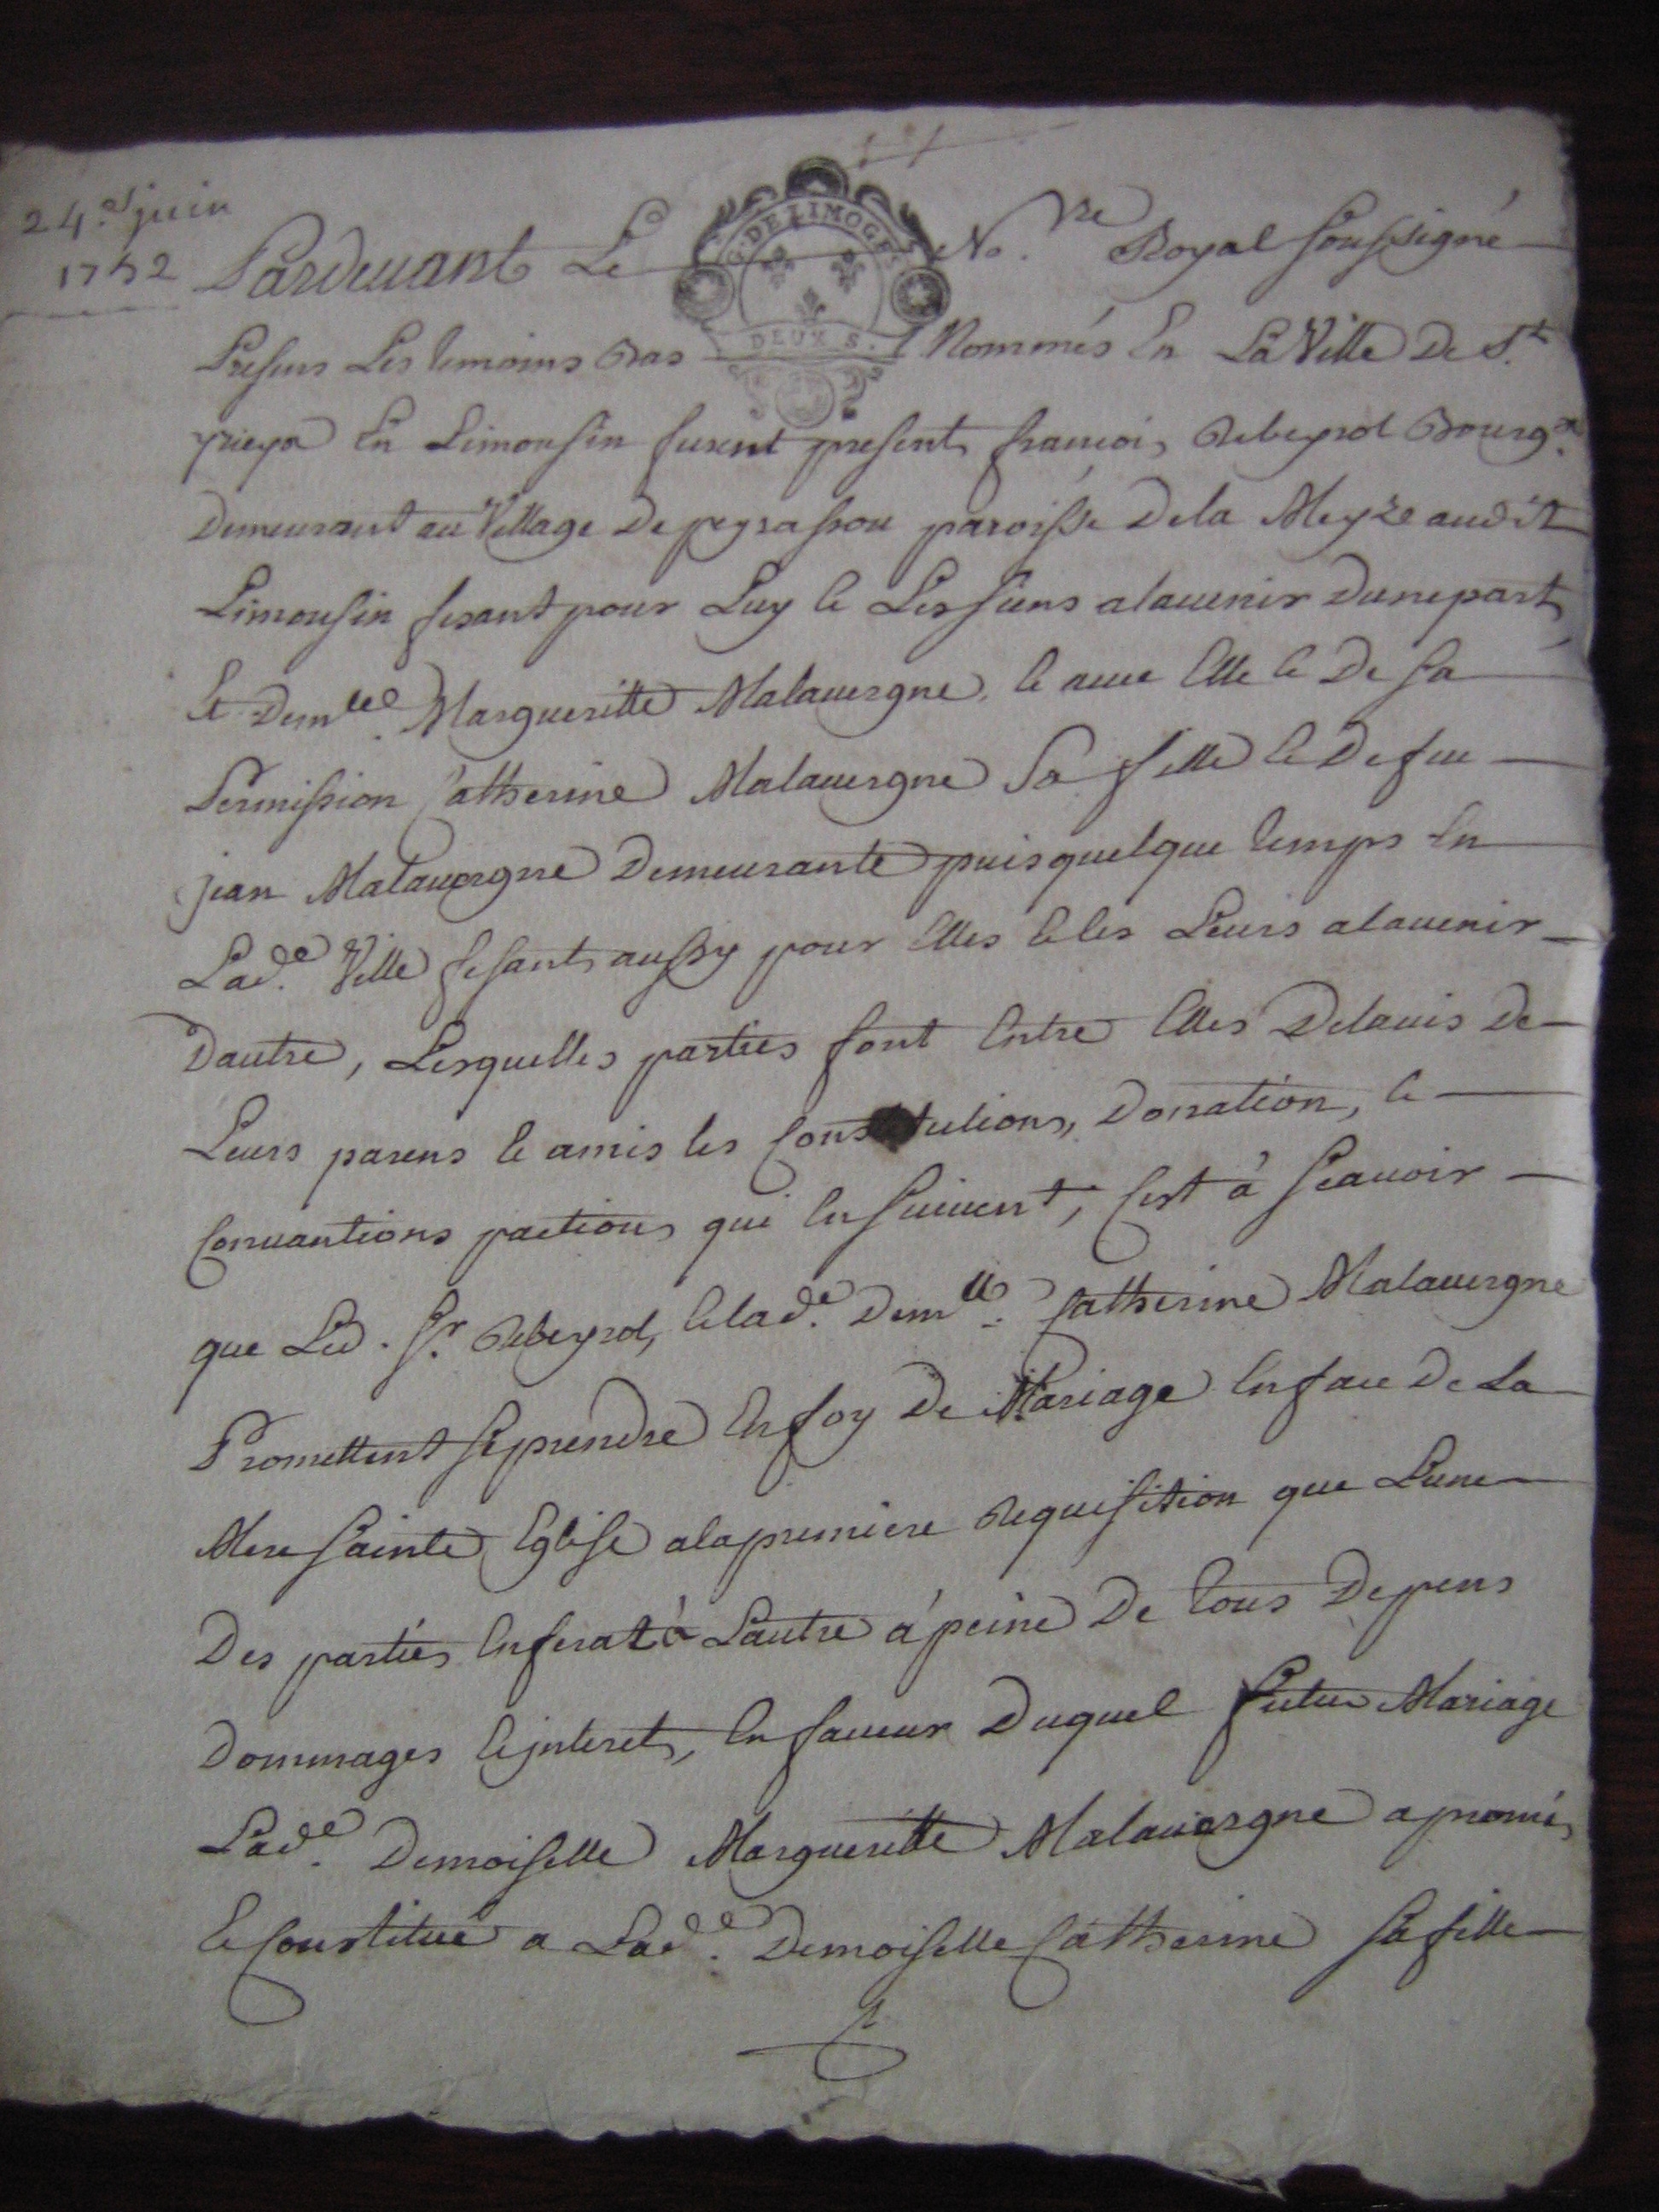 24.e juin
1752
G. DE LIMOGES
DEUX S.
Pardeuant Le No.re Royal soussigné
Presens Les temoins Bas Nommés En La Ville De St.
yrieyx En Limousin furent presents francois Rebeyrol Bourg.s
Demeurant au Village De peyrassou paroisse Dela Meyze audit
Limousin fesant pour Luy et Les siens alauenir Dune part
Et Dem.lle Margueritte Malauergne, et auec Elle et De sa
Permission Catherine Malauergne sa fille et De feu
jean Malauergne Demeurante puis quelque temps En
Lad.e Ville fesant aussy pour Elles et les Leurs alauenir
Dautre, Lesquelles parties font Entre Elles Delauis De
Leurs parens et amis les Constitutions, Donation, et
Conuantions pactions qui Ensuiuent, Cest à scauoir
que Led. Sr. Rebeyrol, et lad.e Dem.lle Catherine Malauergne
Promettent se prendre En foy De Mariage En face De La
Mere sainte Eglise ala premiere Requisition que Lune
Des parties En ferat à Lautre à peine De tous Depens
Dommages et jnterets, En faueur Duquel futur Mariage
Lad.e Demoiselle Margueritte Malauergne a promis
et Constitué a Lad.e Demoiselle Catherine sa fille